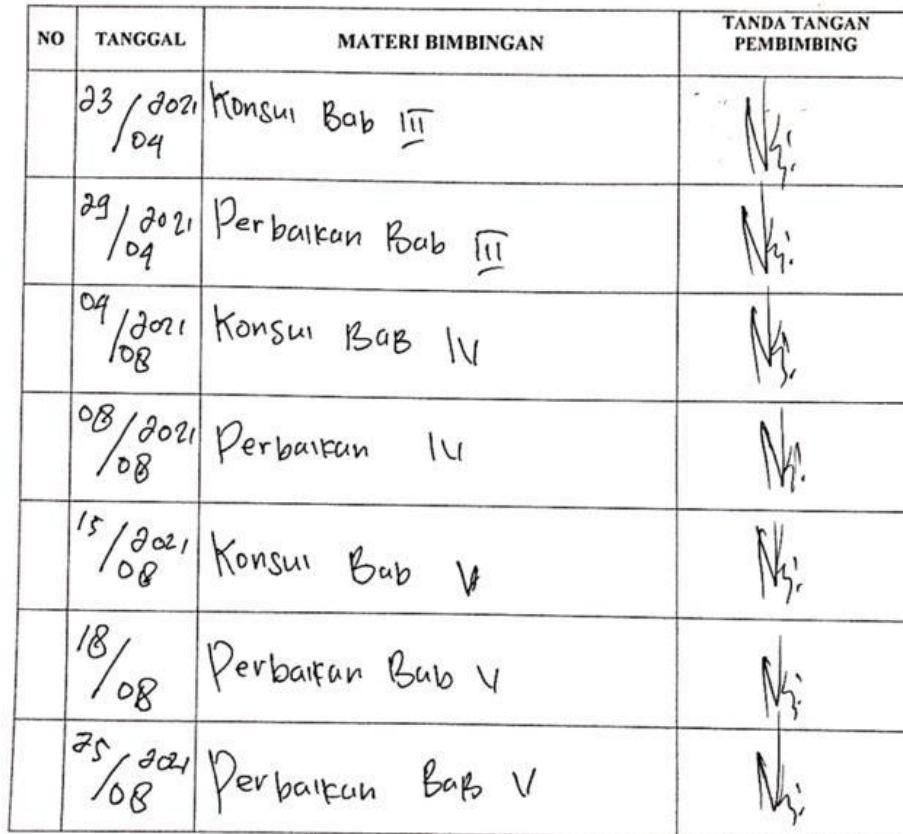 NO TANGGAL MATERI BIMBINGAN TANDA TANGAN PEMBIMBING
23/04 2021 Konsul Bab III
29/04 2021 Perbaikan Bab III
04/08 2021 Konsul BAB IV
08/08 2021 Perbaikan IV
15/08 2021 Konsul Bab V
18/08 Perbaikan Bab V
25/08 2021 Perbaikan BAB V